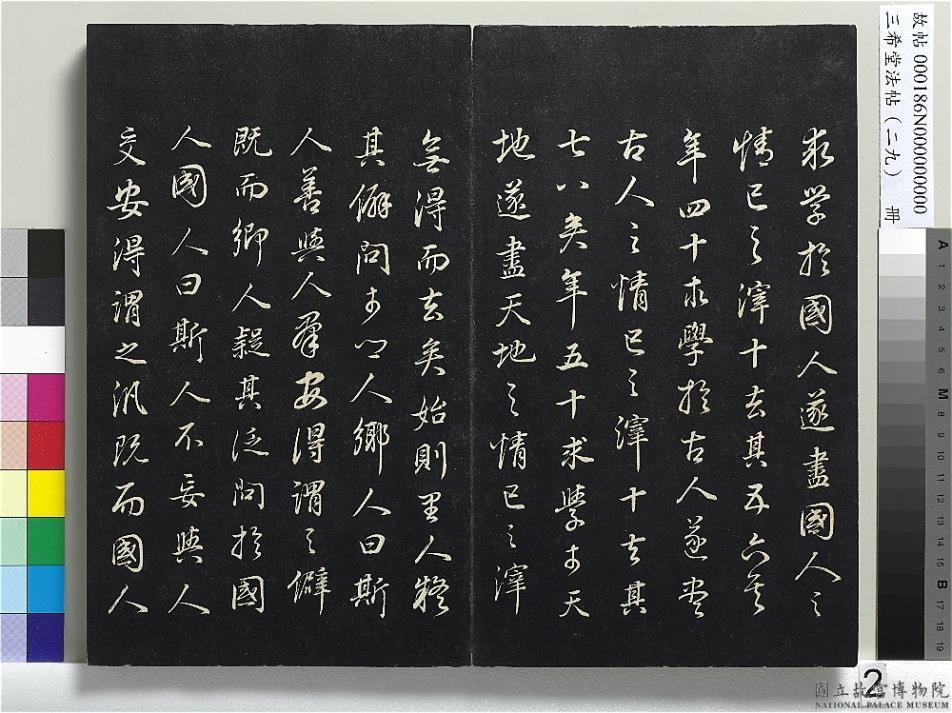 求学於國人遂盡國人之
情已之滓十去其五六矣
年四十求學於古人遂盡
古人之情已之滓十去其
七八矣年五十求學於天
地遂盡天地之情已之滓
無得而去矣始則里人疑
其僻問於之人鄉人曰斯
人善與人群安得謂之僻
既而鄉人疑其泛問於國
人國人曰斯人不妄與人
交安得謂之汎既而國人
故帖 000186N000000000
三希堂法帖（二九） 冊
A 1 2 3 4 5 6 M 8 9 10 11 12 13 14 15 B 17 18 19
2
國立故宮博物院
NATIONAL PALACE MUSEUM